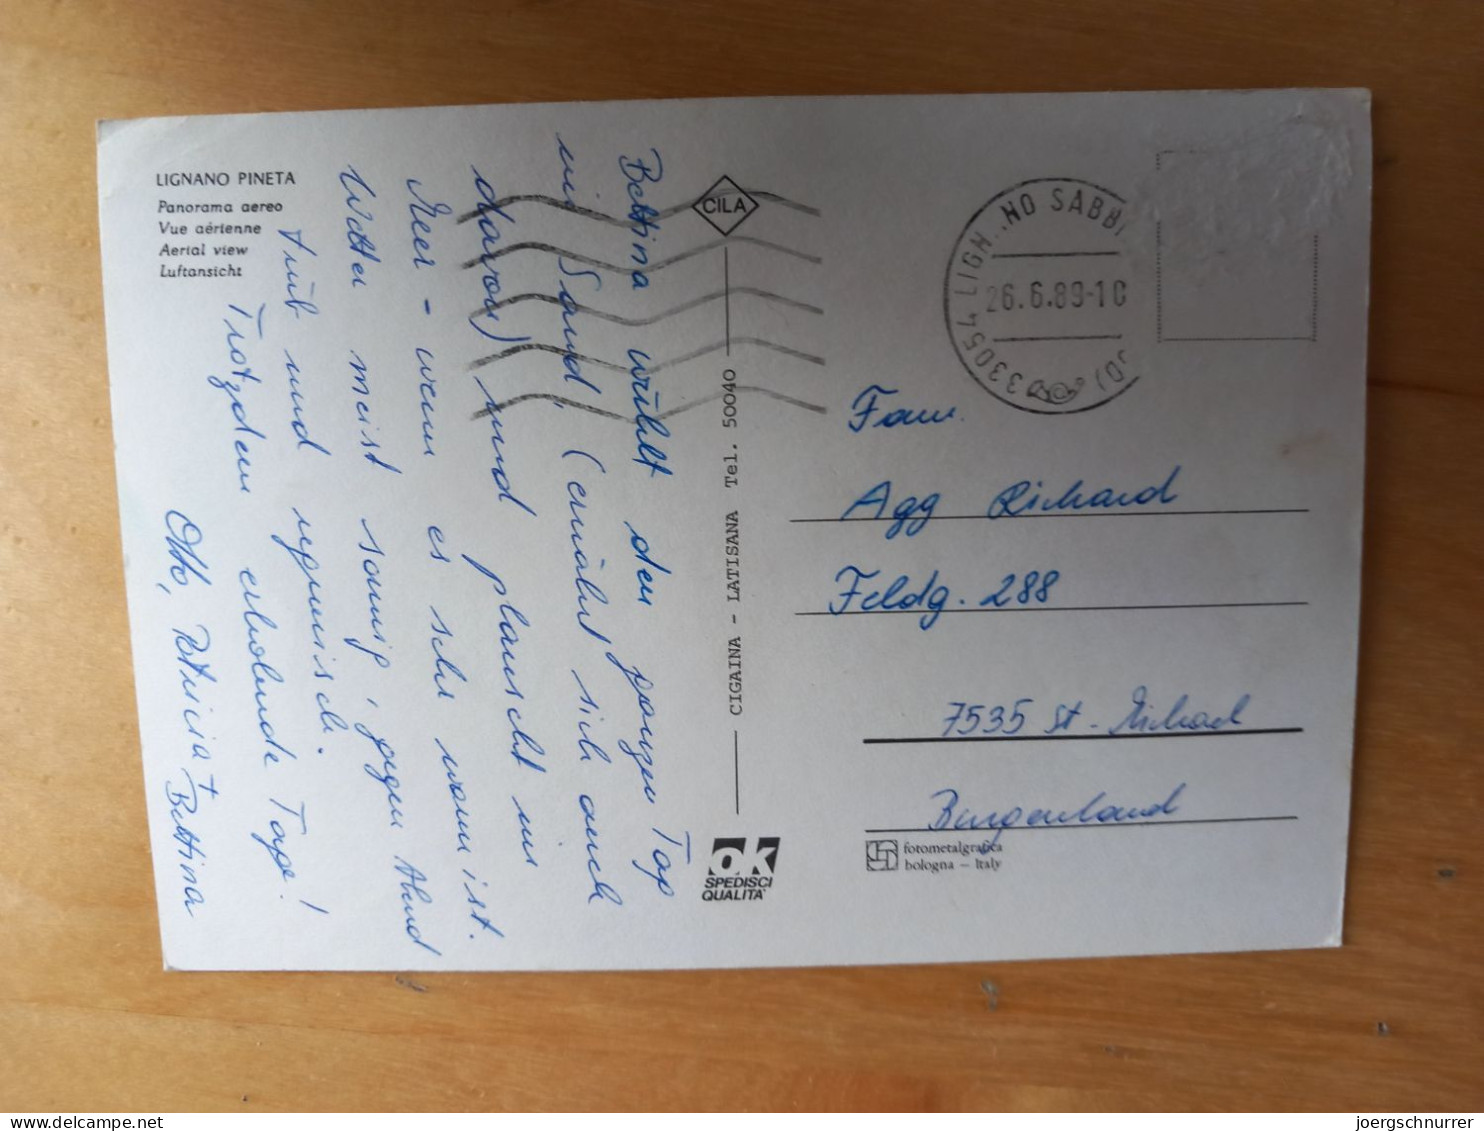 LIGNANO PINETA
Panorama aereo
Vue aérienne
Aerial view
Luftansicht
Bettina wühlt den ganzen Tag
im Sand, (ernährt sich auch
davon) und planscht im
Meer - wenn es sehr warm ist.
Wetter meist sonnig, gegen Abend
trüb und regnerisch.
Trotzdem erholende Tage!
Otto, Patricia +
Bettina
CILA
CIGAINA - LATISANA Tel. 50040
ok
SPEDISCI
QUALITA'
33054 LIGN..NO SABBI
26.6.89-10
Fam.
Agg Richard
Feldg. 288
7535 St. Michael
Burgenland
fotometalgrafica
bologna - Italy
delcampe.net
joergschnurrer